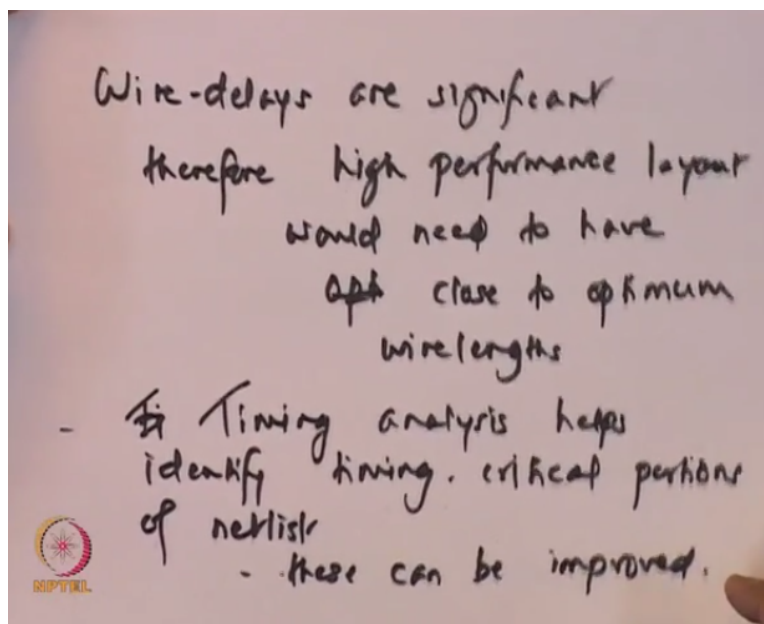 Wire-delays are significant
therefore high performance layout
would need to have
close to optimum
wirelengths
- Timing analysis helps
identify timing. critical portions
of netlist
- these can be improved.
NPTEL